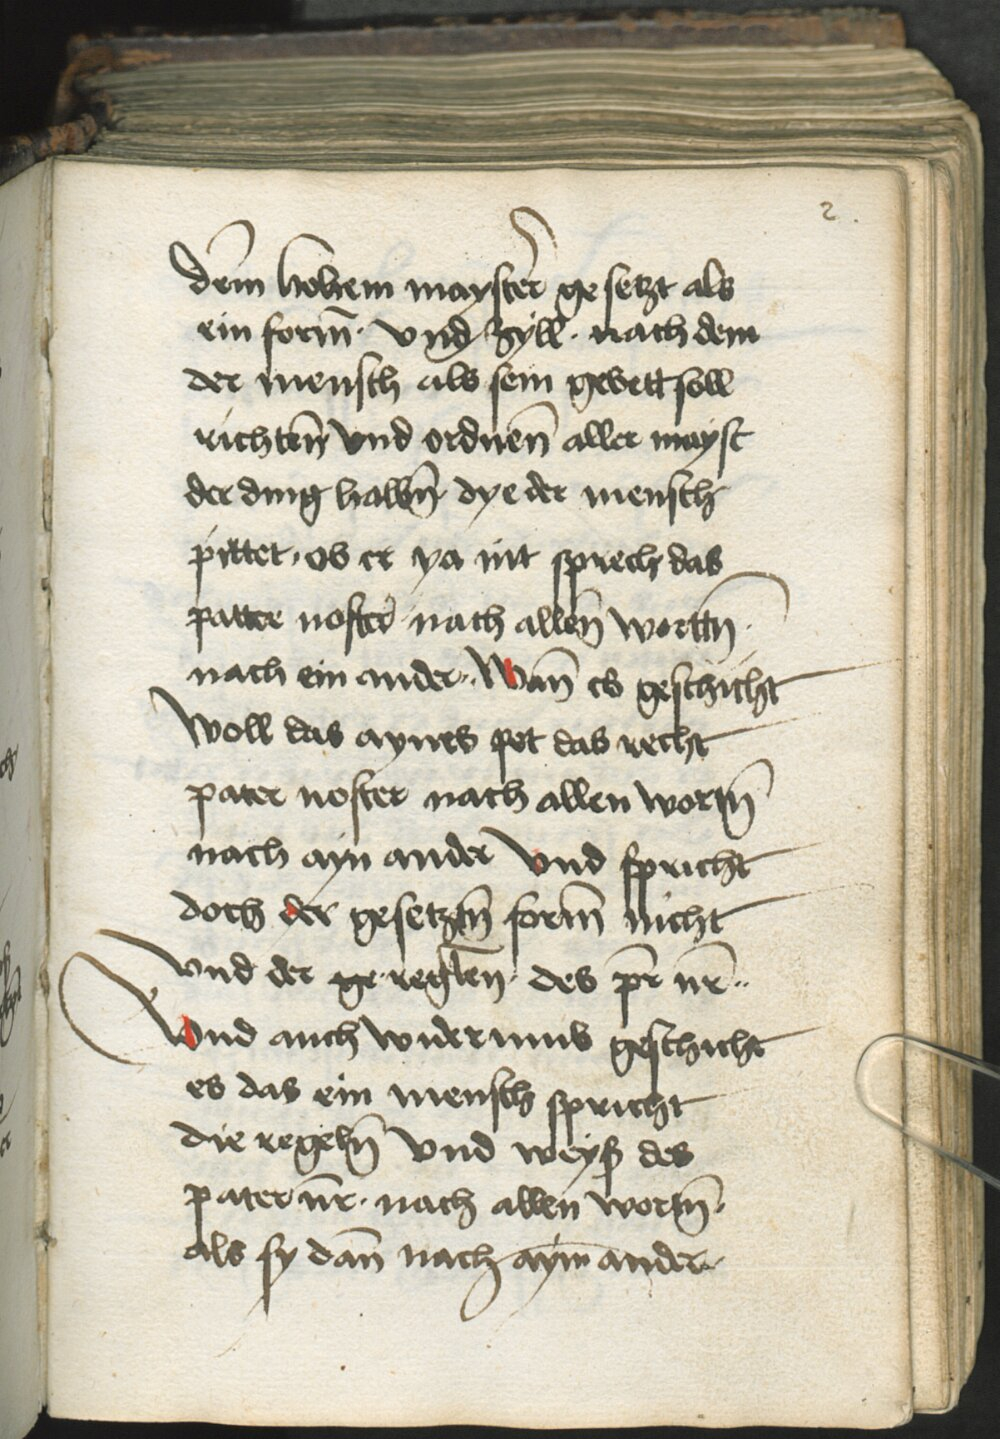 2.
dem hohem mayster gesetzt als
ein form̄. vnd zyll. nach dem
der mensch als sein gebett soll
richten̄ vnd ordnen̄ aller mayst
der ding halbn̄. dye der mensch
pittet. ob er ya nit sprech das
patter noster nach allen̄ wortn̄.
nach ein ander. Wan̄ es geschicht
woll das aynes pet das recht
pater noster nach allen wortn̄
nach ayn ander vnd spricht
doch der gesetztn̄ form̄ nicht
vnd der ge reglen̄. des pr̄ nr̄..
Vnd auch widerumb geschicht
es das ein mensch spricht
die regeln̄ vnd weyß des
pater nr̄. nach allen wortn̄.
als sy dan̄ nach aym ander.